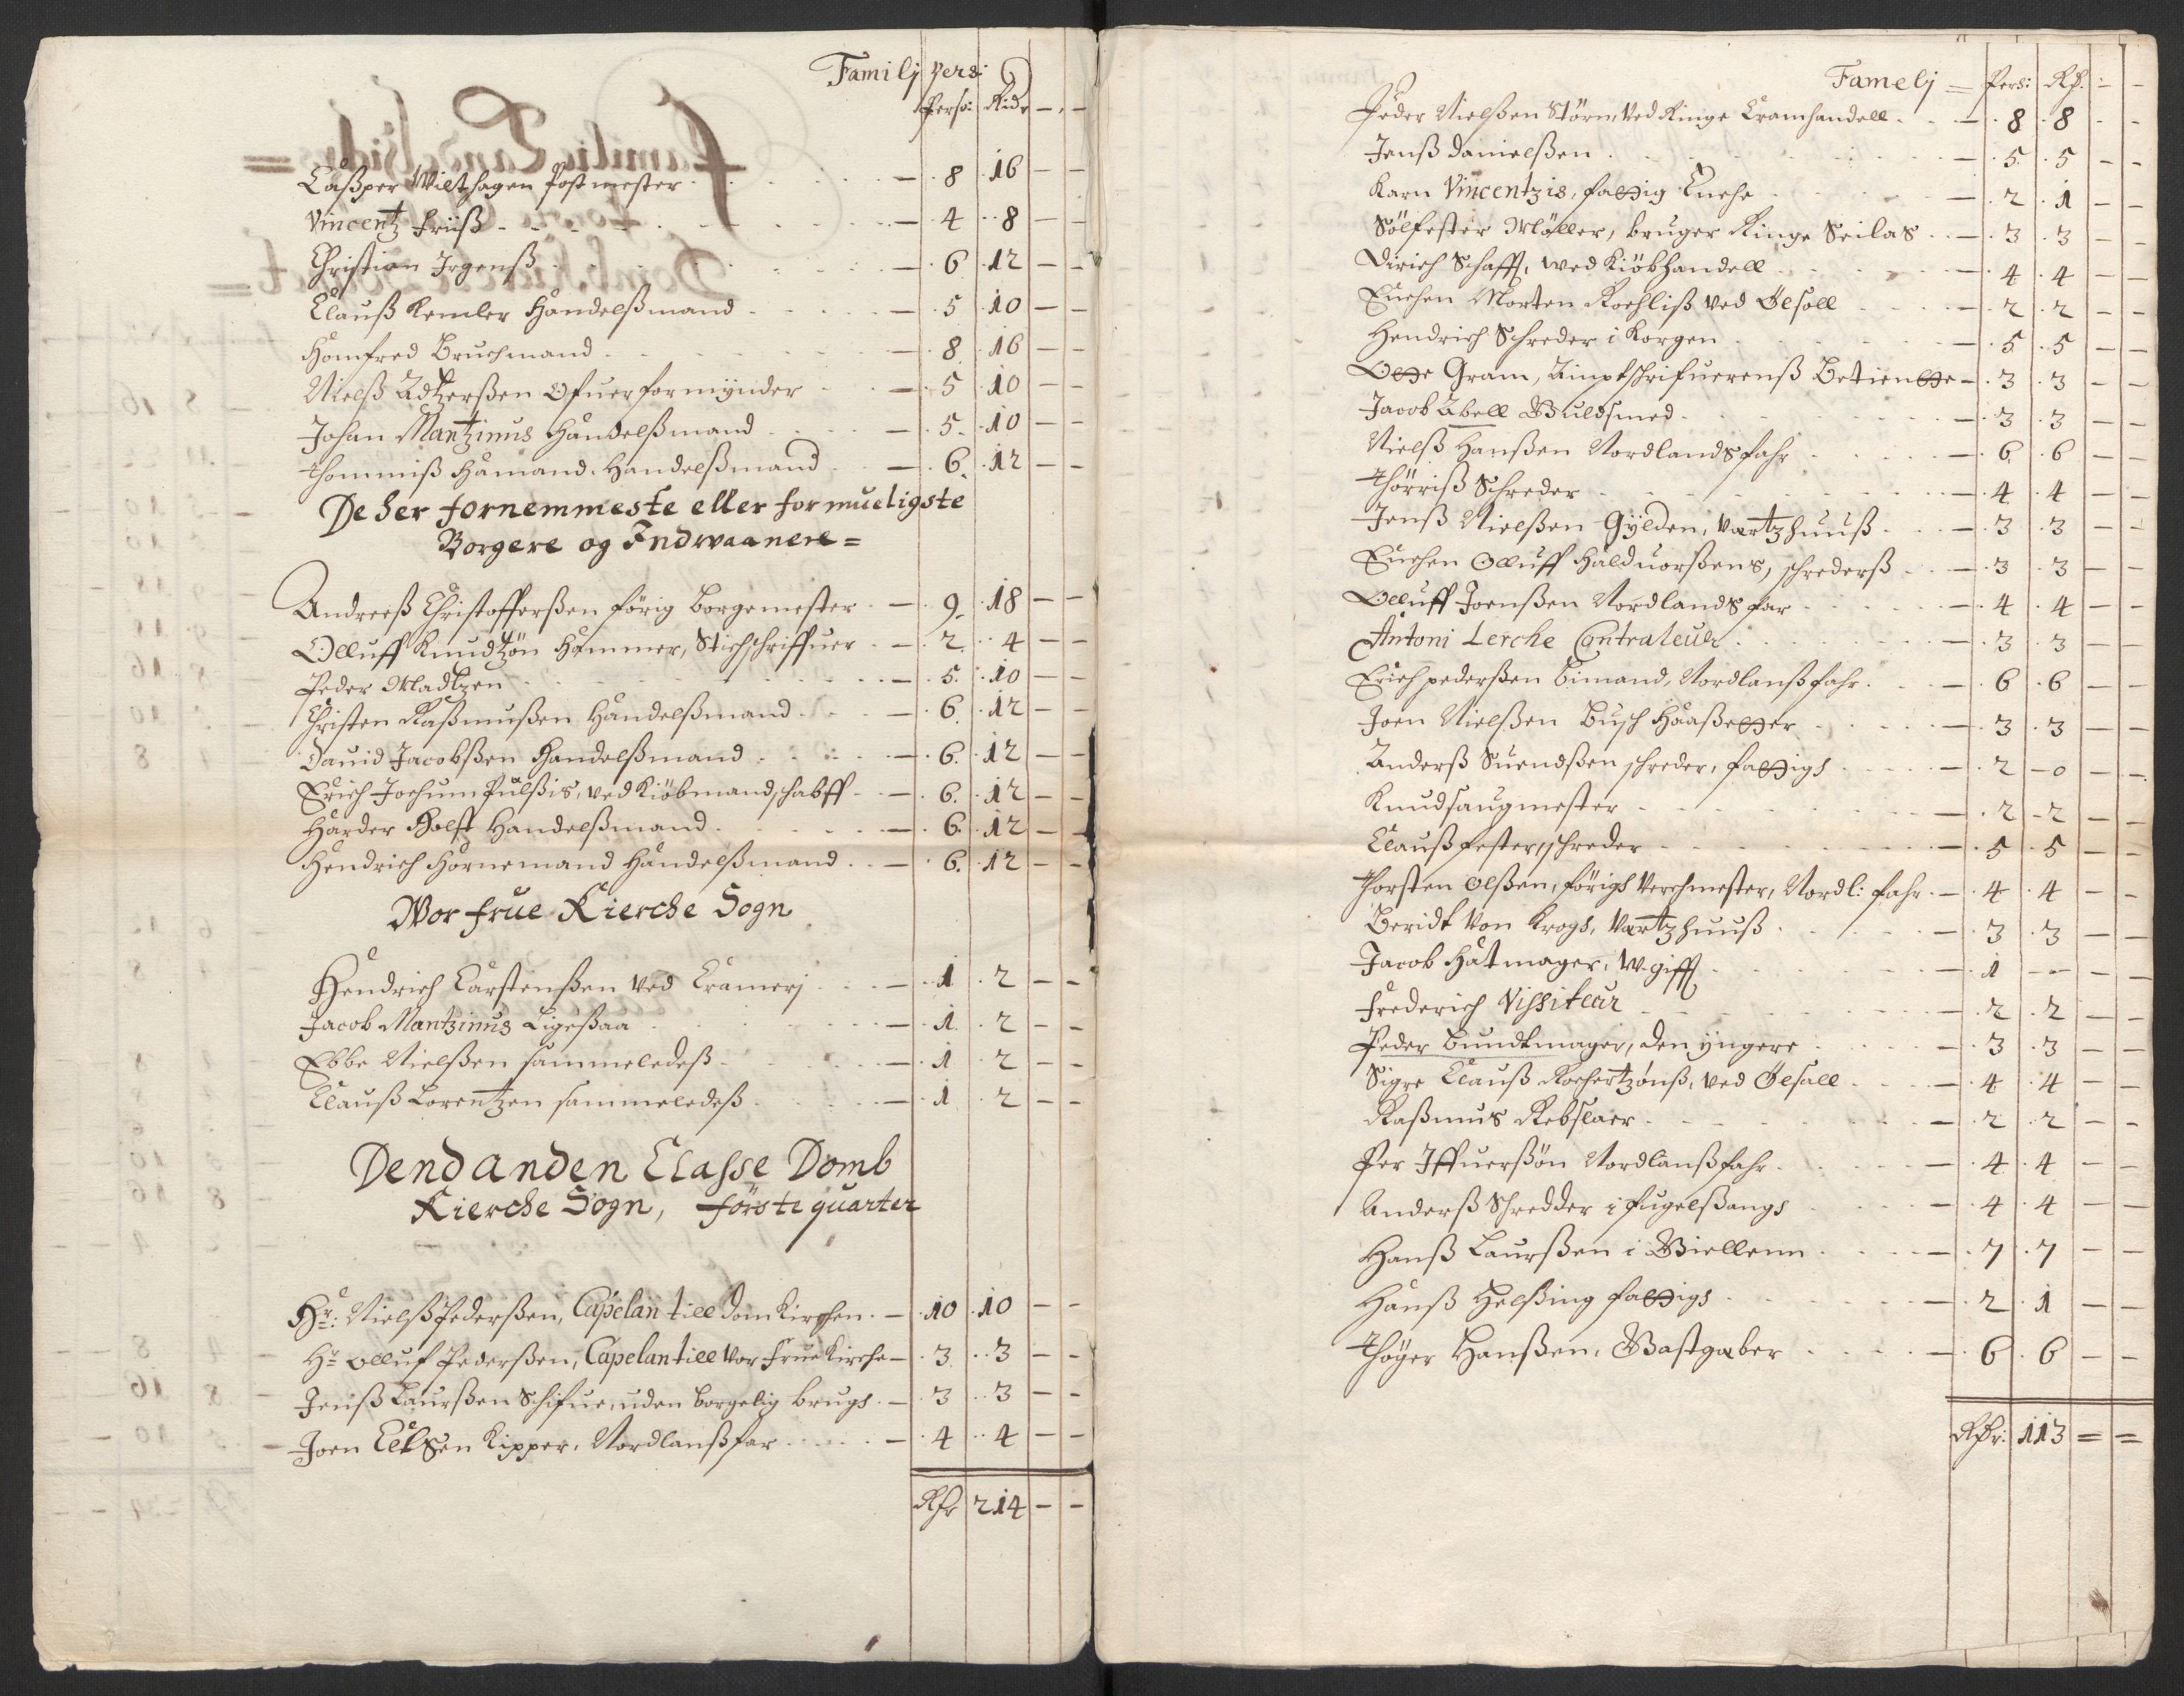 Familj pers:
Perso: Ridr – . –
Caßper Wilthagen Postmester – 8 . 16 – –
Vincentz Friiß – 4 . . 8 – –
Christian Jrgenß – 6 . 12 – –
Clauß Kemler Handelßmand – 5 . 10 – –
Homfred Bruchmand – 8 . 16 – –
Nielß Adtzerßen Ofuerformÿnder – 5 . 10 – –
Johan Mantzinus Handelßmand – 5 . 10 – –
Thommiß Hamand Handelßmand – 6 . 12 – –
De her fornemmeste eller formueligste
Borgere og Indwaanere =
Andreeß Christofferßen förig borgemester – 9 . 18 – –
Olluff Knudtzön Hammer, Stichschriffuer – 2 . . 4 – –
Peder Madtzen – 5 . 10 – –
Christen Raßmußen Handelßmand – 6 . 12 – –
Dauid Jacobßen Handelßmand – 6 . 12 – –
Erich Jochum Pulßis, ved Kiöbmandschabff – 6 . 12 – –
Harder Holst Handelßmand – 6 . 12 – –
Hendrich Hornemand Handelßmand – 6 . 12 – –
Wor frue Kierche Sogn
Hendrich Carstenßen ved Cramerj – 1 . 2 – –
Jacob Mantzinus Ligeßaa – 1 . 2 – –
Ebbe Nielßen sammeledeß – 1 . 2 – –
Clauß Lorentzen sammeledeß – 1 . 2 – –
Dend anden Classe Domb
Kierche Sogn, förste quarter
Hr: Nielß Pederßen, Capelan till Domkirchen – 10 . 10 – –
Hr Olluf Pederßen, Capelan till Vor Frue Kirche – 3 . . 3 – –
Jenß Laurßen Schifue, uden borgelig brugs – 3 . . 3 – –
Joen Ellßen Kipper, Nordlanßfar – 4 . . 4 – –
Rdr 214 – –
Famelj = Pers: Rd: – –
Peder Nielßen Störm, ved Ringe Cramhandell – 8 . 8 – –
Jenß Danielßen – 5 . 5 – –
Karn Vincentzis, fattig Enche – 2 . 1 – –
Sölfester Möller, bruger Ringe Seilas – 3 . 3 – –
Dirich Schaff, wed Kiöbhandell – 4 . 4 – –
Enchen Morten Rochliß ved Ölsall – 2 . 2 – –
Hendrich Schreder i Korgen – 5 . 5 – –
Otte Gram, Amptschrifuerenß Betiente – 3 . 3 – –
Jacob Abell Guldsmed – 3 . 3 – –
Nielß Hanßen Nordlandsfahr – 6 . 6 – –
Thörriß Schreder – 4 . 4 – –
Jenß Nielßen Gÿlden, Vartzhuuß – 3 . 3 – –
Enchen Olluff Halduorßens, schrederß – 3 . 3 – –
Olluff Joenßen Nordlandsfar – 4 . 4 – –
Antoni Lerche Contraleur – 3 . 3 – –
Erich pederßen Bimand, Nordlanßfahr – 6 . 6 – –
Joen Nielßen Busch Haaßetter – 3 . 3 – –
Anderß Suendßen schreder, fattigs – 2 – 0 – –
Knudsaugmester – 2 – 2 – –
Clauß fester, schreder – 5 . 5 – –
Thorsten Olßen, förigs Verchmester, Nordl: fahr – 4 . 4 – –
Beridt Von Krogs, Vartzhuuß – 3 . 3 – –
Jacob Hatmager, W. giff – 1 – – – –
Frederich Vissiteur – 2 . 2 – –
Peder Bundtmager, den ÿngere – 3 . 3 – –
Sigre Clauß Rochertzönß, ved Ölsall – 4 . 4 – –
Raßmus Rebslaer – 2 . 2 – –
Per Iffuerßön Nordlanßfahr – 4 . 4 – –
Anderß Schredder i fugelßangs – 4 . 4 – –
Hanß Laurßen i Giellenn – 7 . 7 – –
Hanß Helßing fattigs – 2 . 1 – –
Thöger Hanßen, Gastgeber – 6 . 6 – –
Rdr: 113 = =